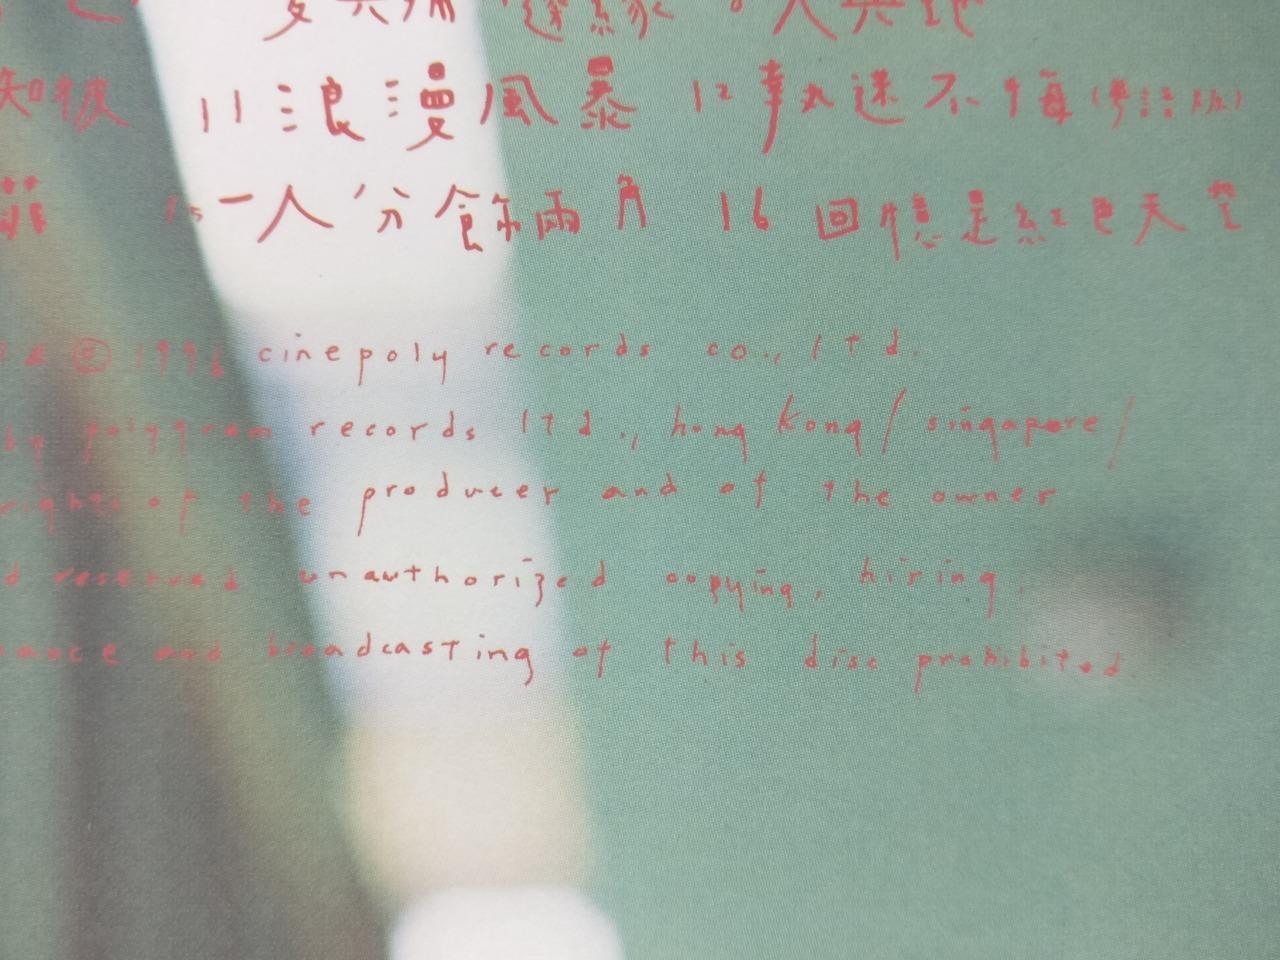 知彼 11浪漫風暴 12執迷不悔(粵語版)
菲 15一人分飾兩角 16 回憶是紅色天空
& © 1996 cinepoly records co., ltd.
by polygram records ltd., hong kong/singapore/
rights of the producer and of the owner
d reserved unauthorized copying, hiring,
mance and broadcasting of this disc prohibited